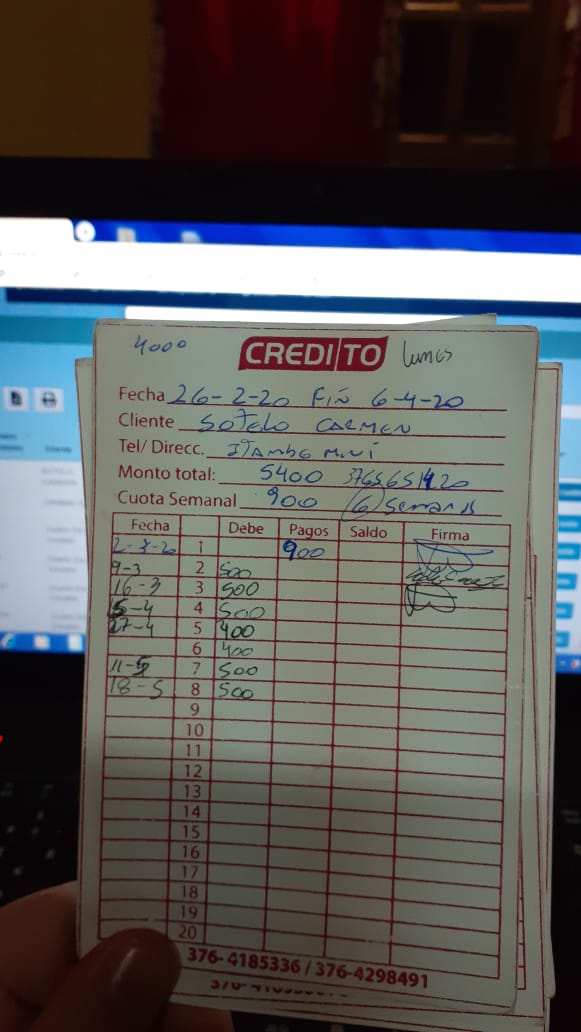 4000 CREDITO lunes
Fecha 26-2-20 FiÑ 6-4-20
Cliente SOTELO CARMEN
Tel/ Direcc. ITAMBE MINÍ
Monto total: 5400
Cuota Semanal 900 (6) Semanas
Fecha Debe Pagos Saldo Firma
2-3-20 1 900
9-3 2 500
16-3 3 500
15-4 4 500
27-4 5 400
6 400
11-5 7 500
18-5 8 500
9
10
11
12
13
14
15
16
17
18
19
20
376-4185336 / 376-4298491